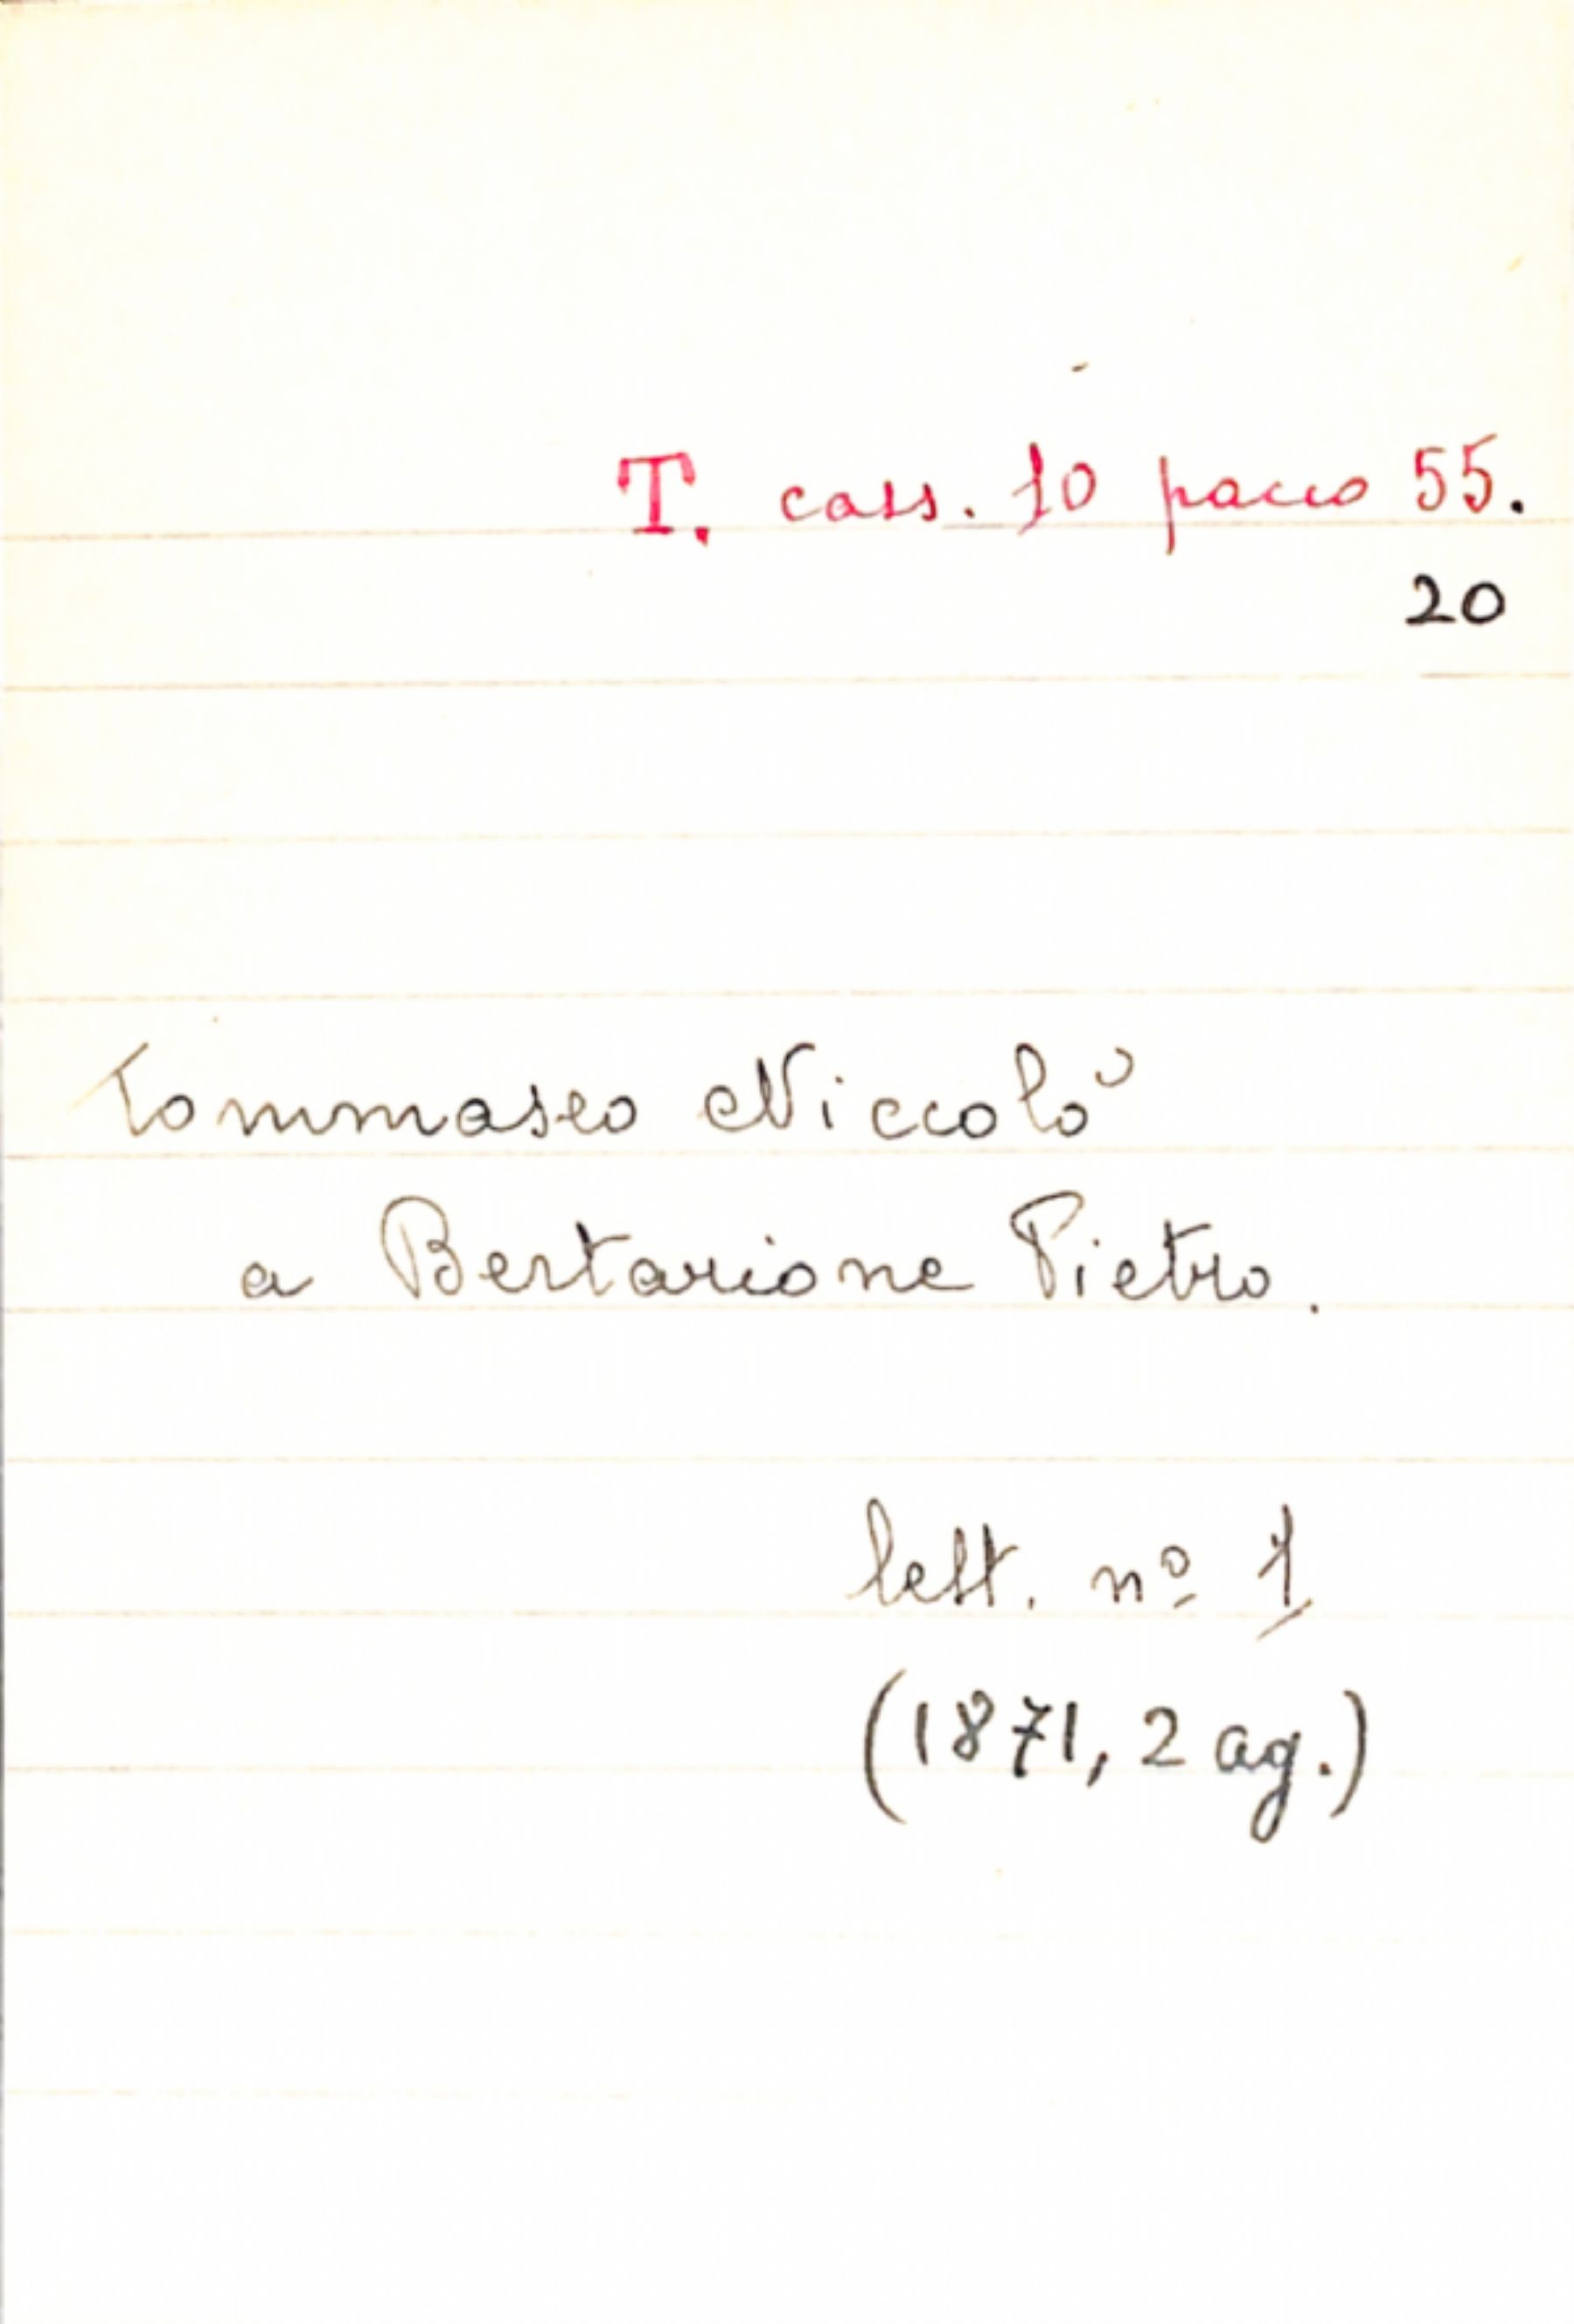 T. cass. 10 pacco 55.
20
Tommaseo Niccolò
a Bertarione Pietro.
lett. nº 1
(1871, 2 ag.)